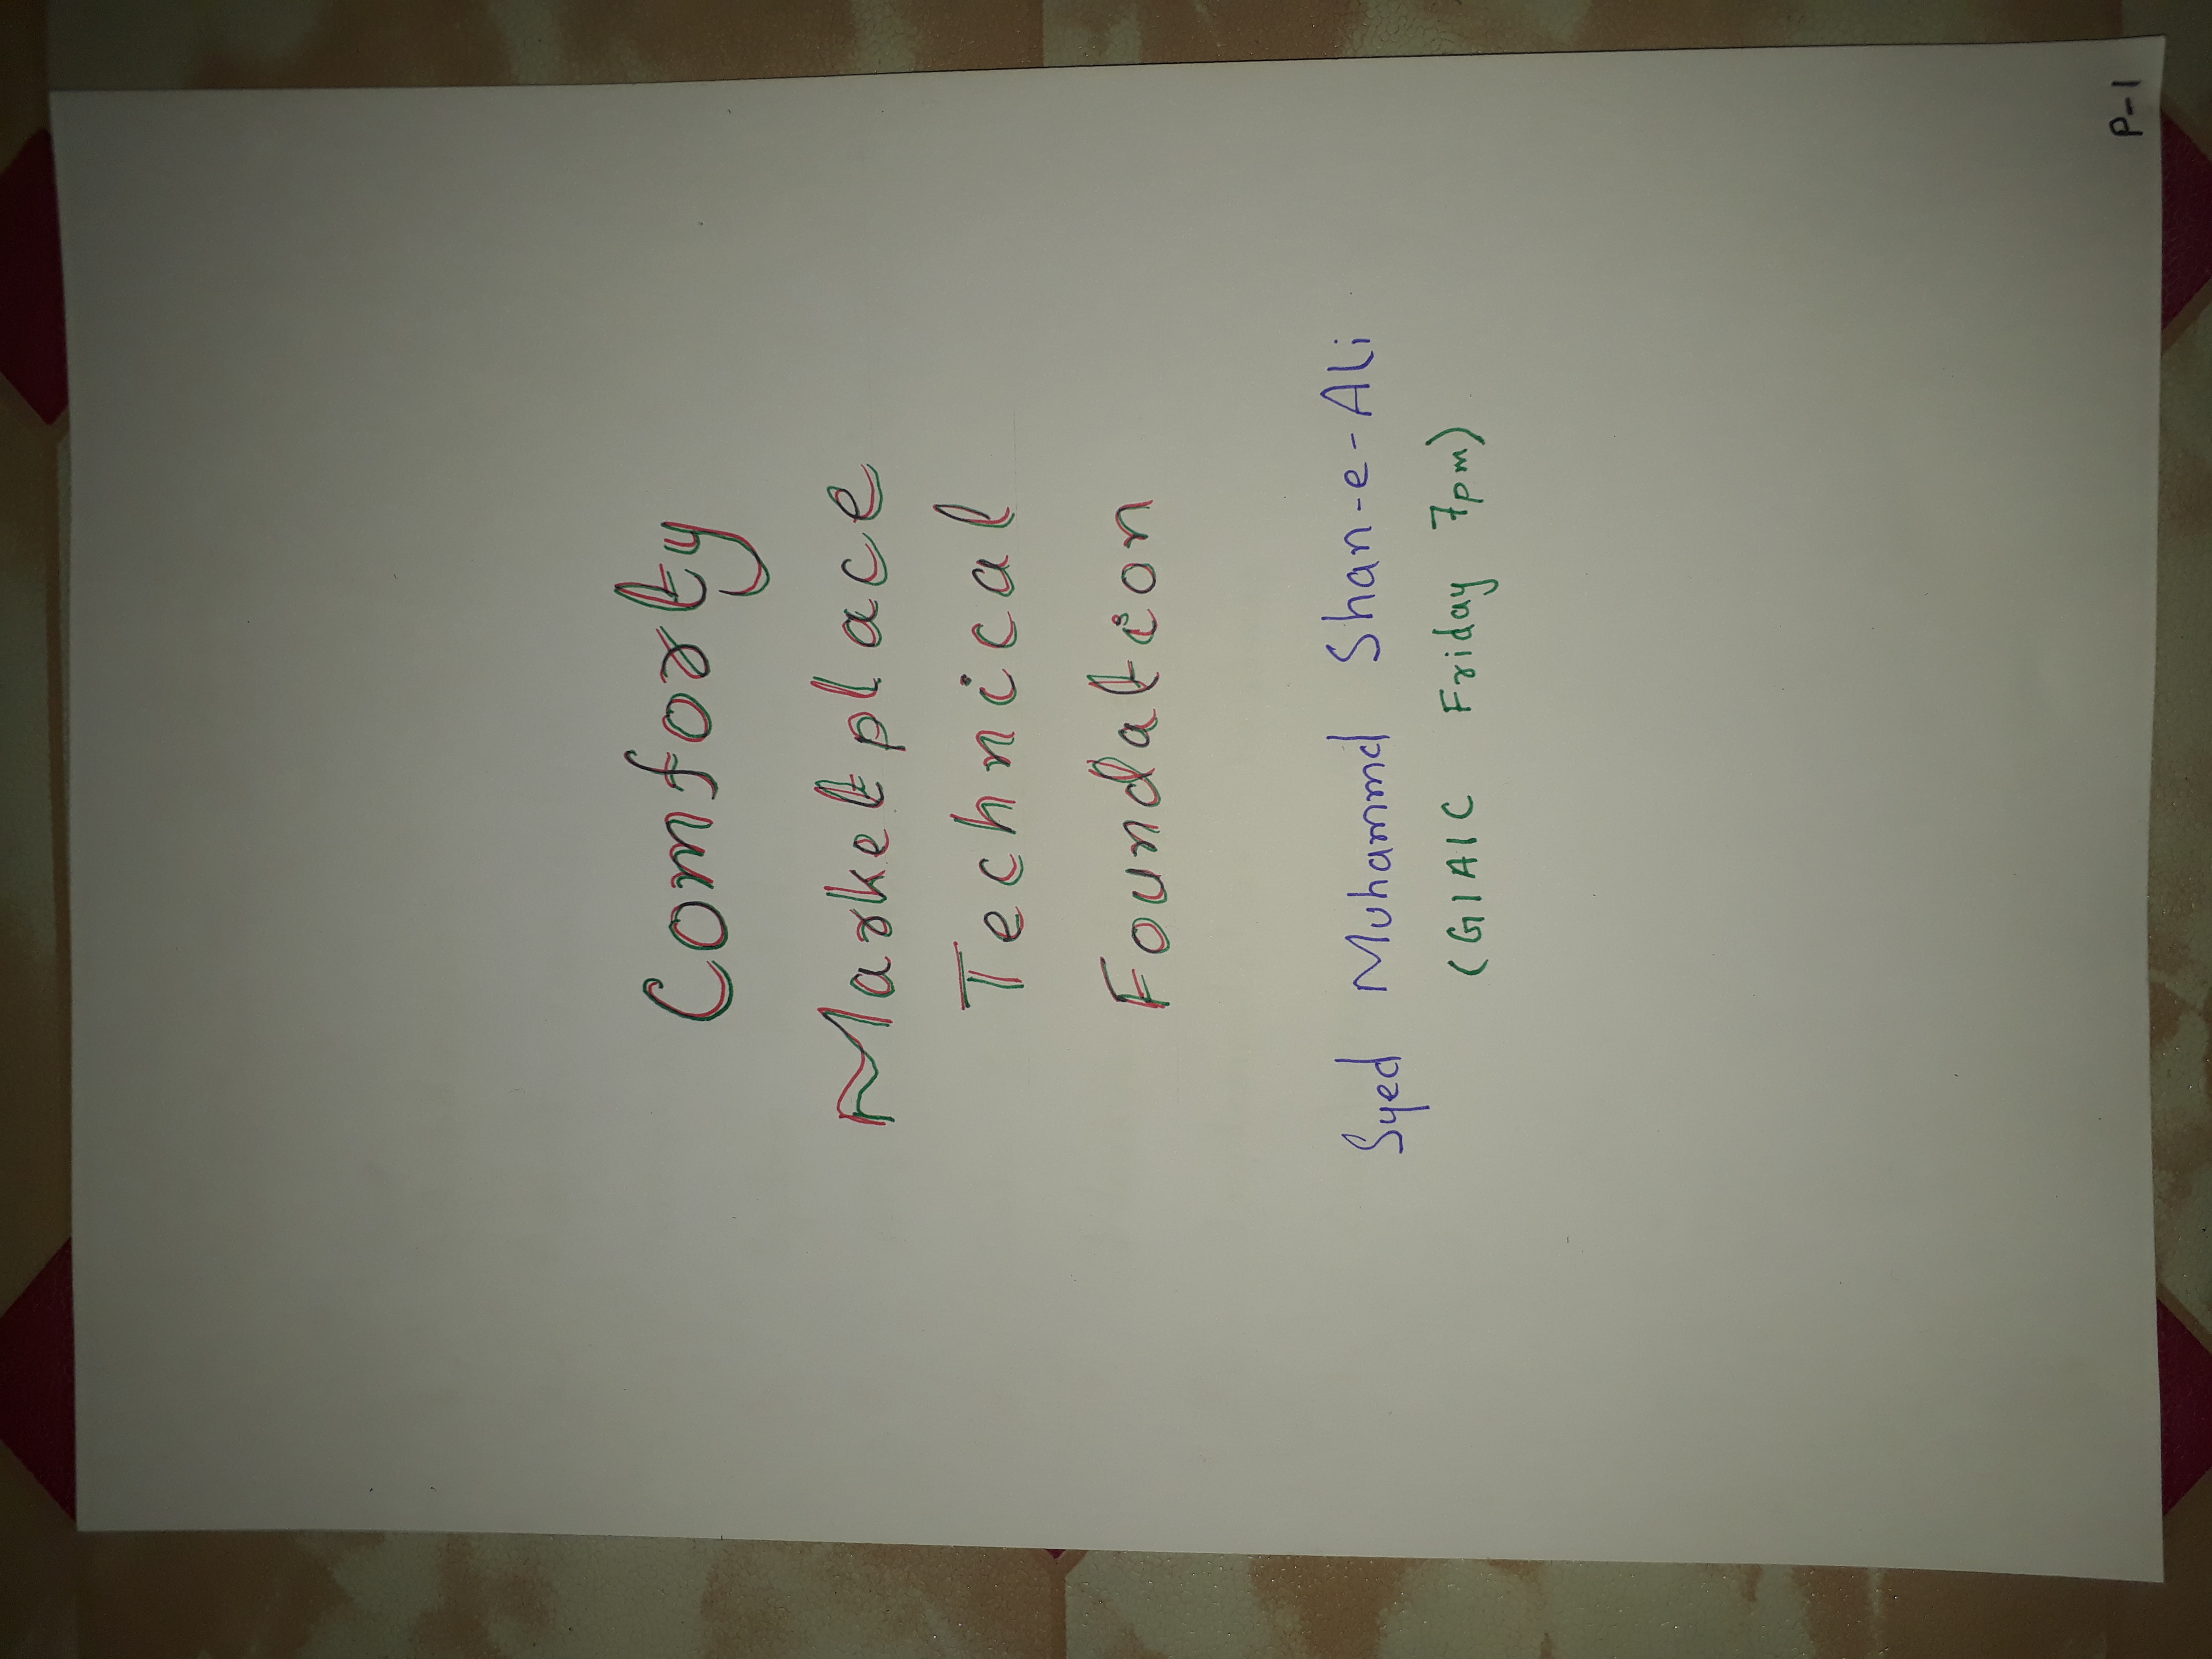 Comforty
Marketplace
Technical
Foundation
Syed Muhammd Shan-e-Ali
(GIAIC Friday 7pm)
P-1